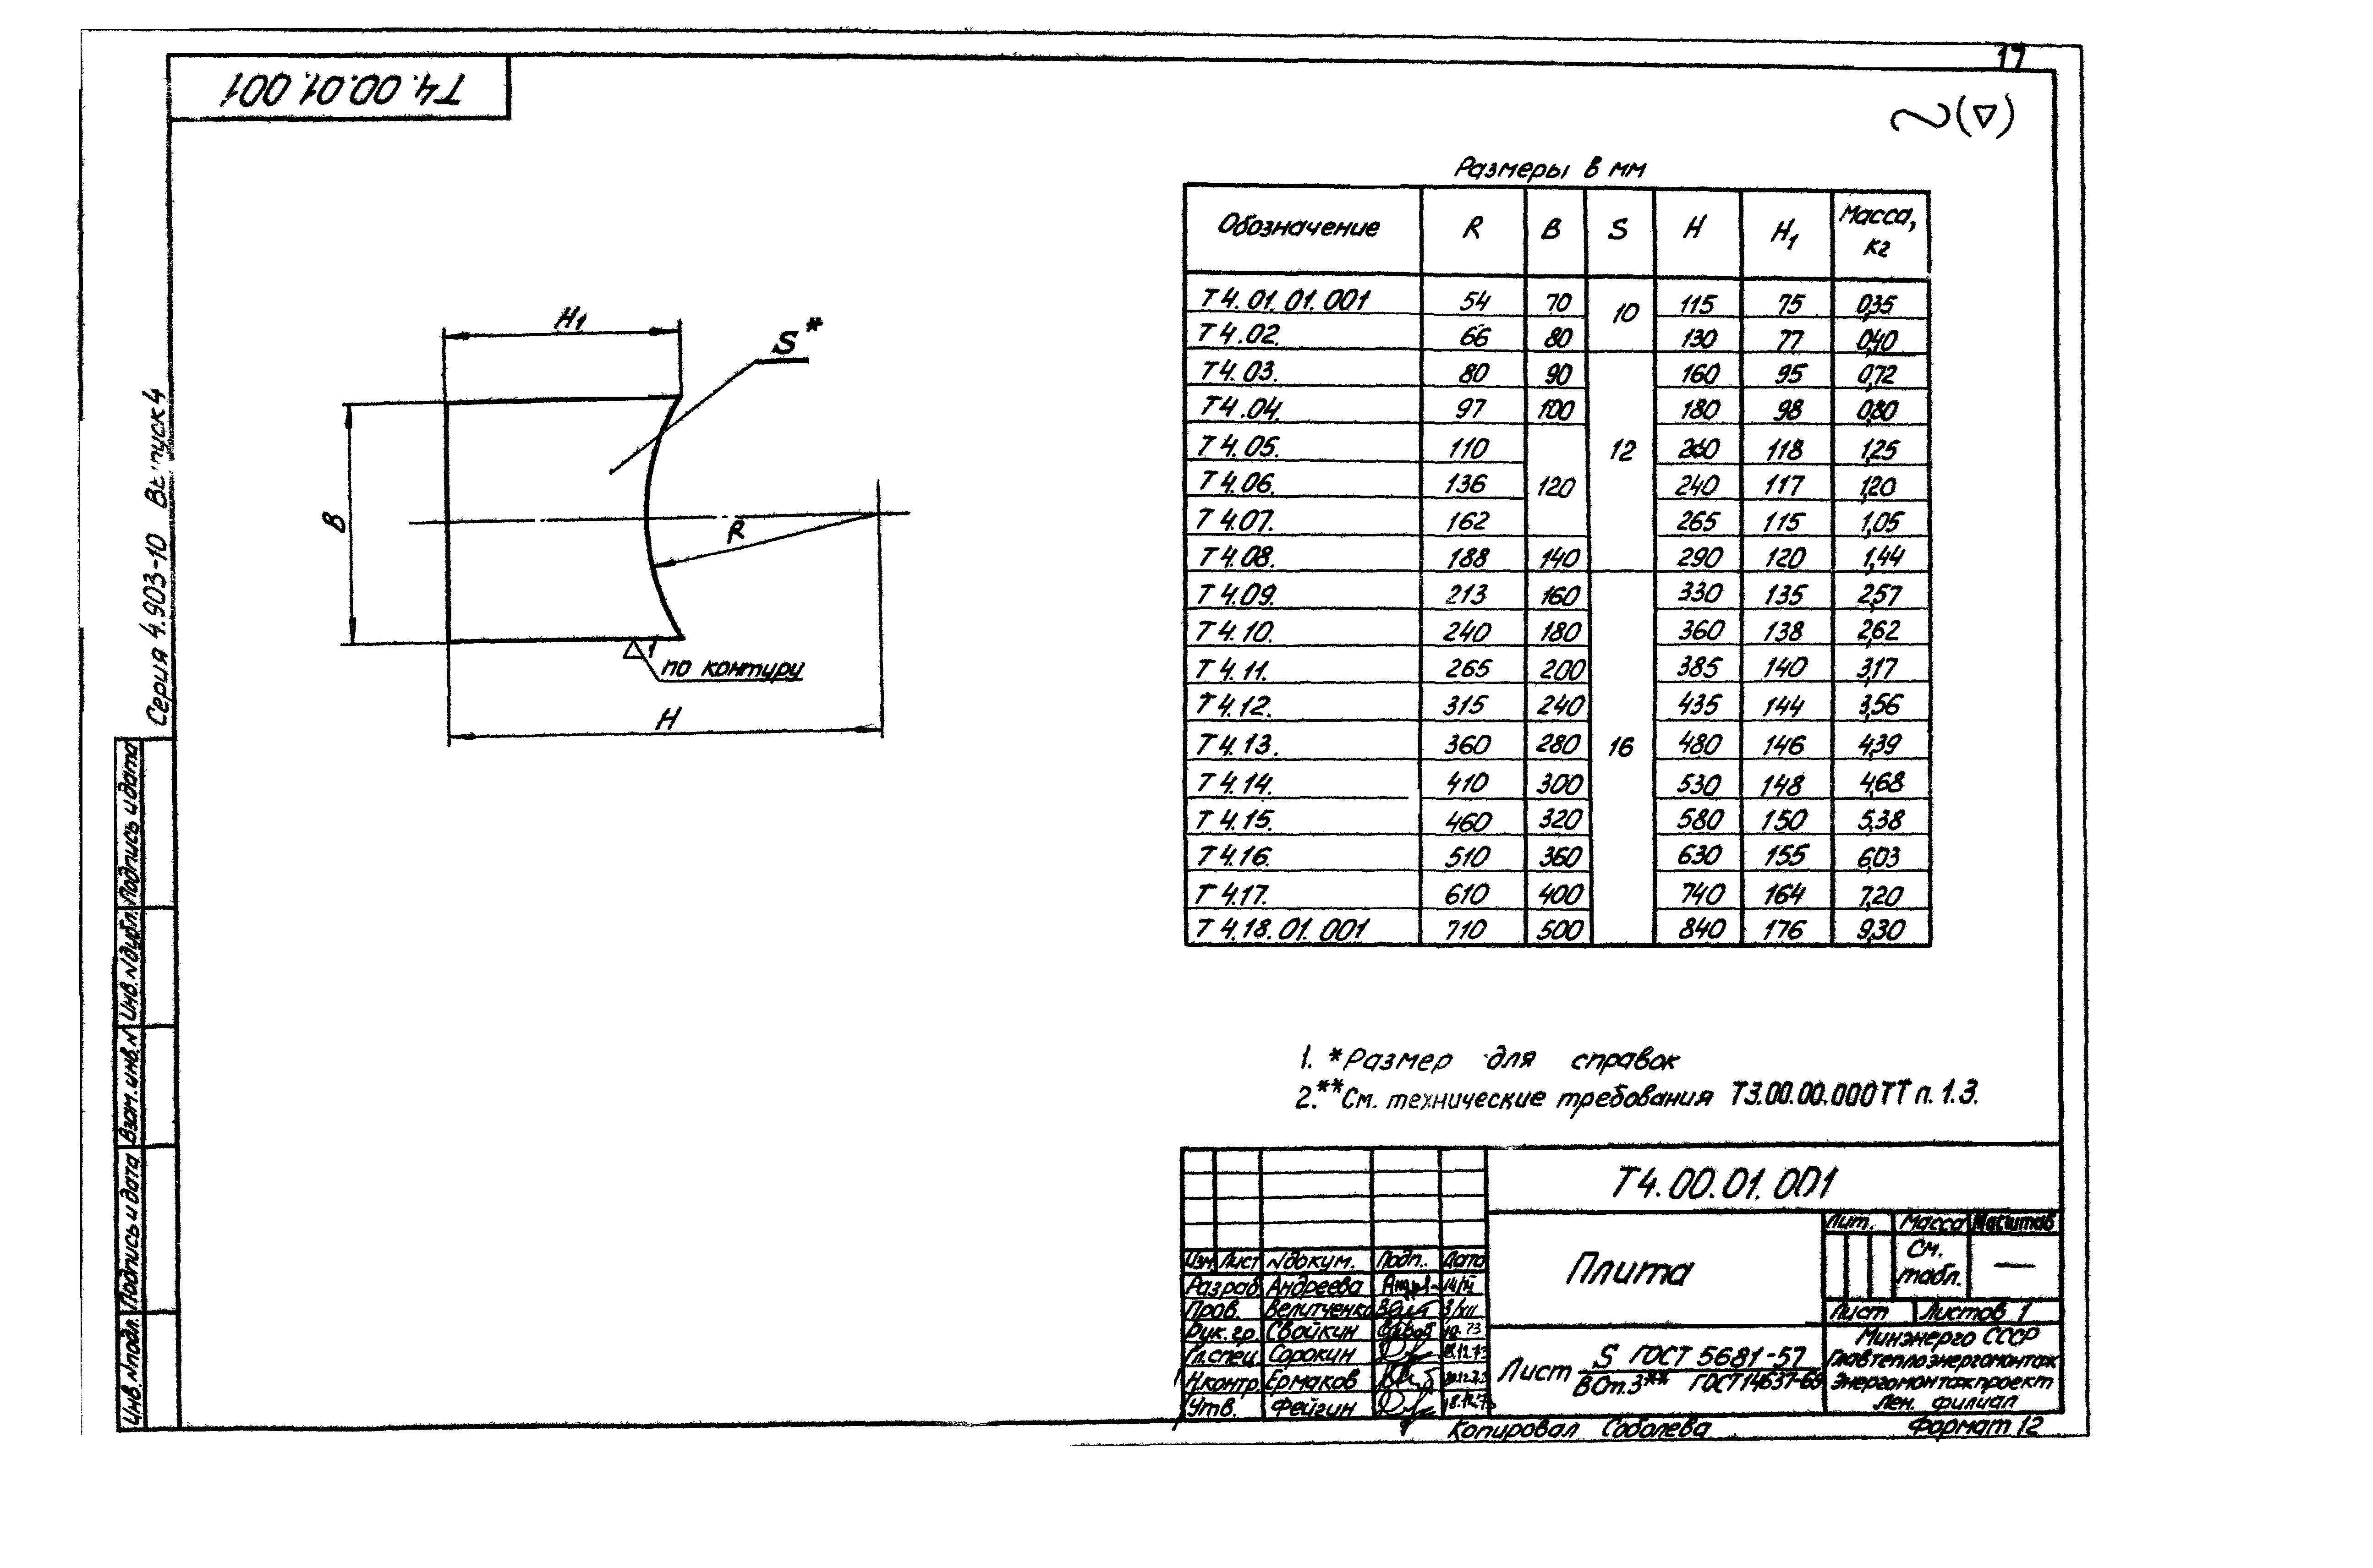 17
Т4.00.01.001
(▽)
Размеры в мм
Обозначение R B S H H1 Масса, кг
Т4.01.01.001 54 70 10 115 75 0,35
Т4.02. 66 80 130 77 0,40
Т4.03. 80 90 12 160 95 0,72
Т4.04. 97 100 180 98 0,80
Т4.05. 110 120 118 1,25
Т4.06. 136 240 117 1,20
Т4.07. 162 265 115 1,05
Т4.08. 188 140 290 120 1,44
Т4.09. 213 160 16 330 135 2,57
Т4.10. 240 180 360 138 2,62
Т4.11. 265 200 385 140 3,17
Т4.12. 315 240 435 144 3,56
Т4.13. 360 280 480 146 4,39
Т4.14. 410 300 530 148 4,68
Т4.15. 460 320 580 150 5,38
Т4.16. 510 360 630 155 6,03
Т4.17. 610 400 740 164 7,20
Т4.18.01.001 710 500 840 176 9,30
H1
S*
B
R
▽1 по контуру
H
Серия 4.903-10 Выпуск 4
1. *Размер для справок
2.**См. технические требования Т3.00.00.000ТТ п. 1.3.
Подпись и дата
Инв. N дубл.
Взам. инв. N
Подпись и дата
Инв. N подл.
Т4.00.01.001
Плита
Лит. Масса Масштаб
См. табл. —
Лист Листов 1
Изм Лист N докум. Подп. Дата
Разраб. Андреева
Пров. Велитченко 3/XII
Рук. гр. Свойкин 10.73
Гл. спец Сорокин 18.12.73
Н.контр. Ермаков
Утв. Фейгин
Лист S ГОСТ 5681-57
ВСт.3** ГОСТ 14637-69
Минэнерго СССР
Главтеплоэнергомонтаж
Энергомонтажпроект
Лен. филиал
Копировал Соболева
Формат 12